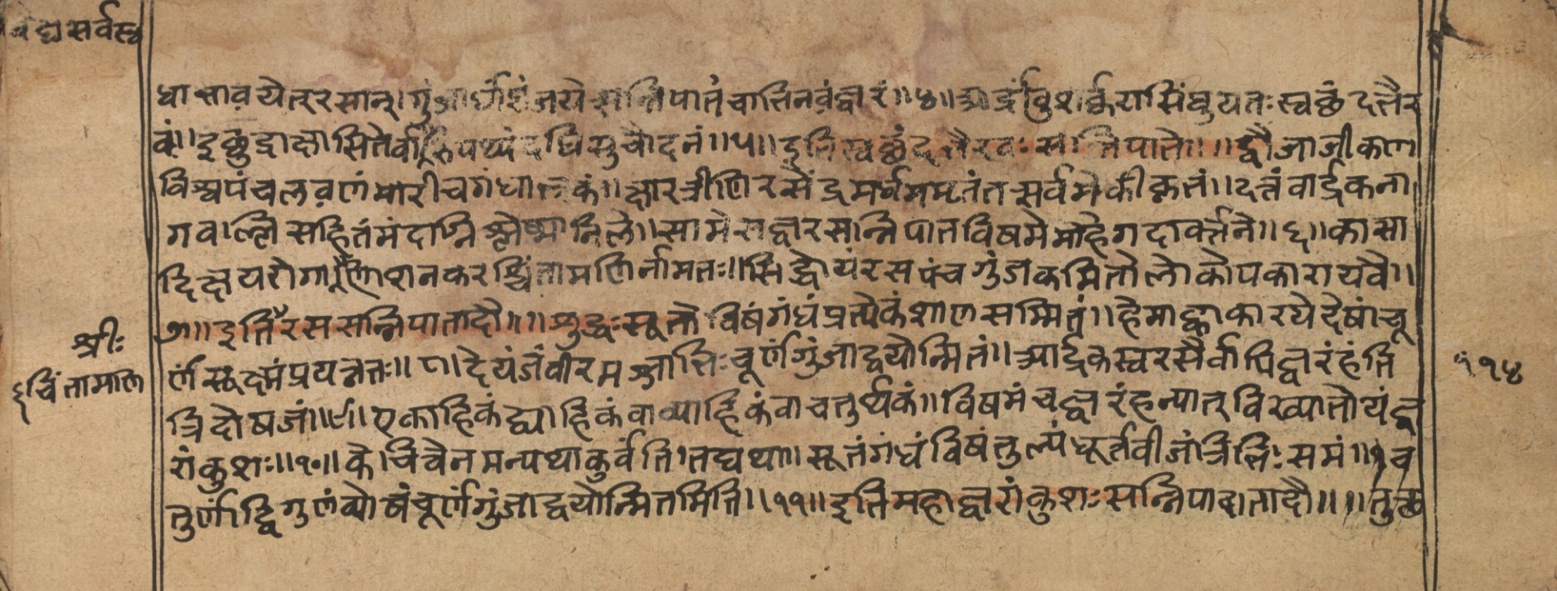 वैद्यसर्वस्व
धा भावयेत् रसान्। गुंजार्धं भंजये सन्निपातं चाभिनवं ज्वरं॥४॥ आर्द्रांबु शर्करा सिंधु युतः स्वच्छंदभैर
वं॥ इक्षुद्राक्षासितेर्वारु पथ्यं दधि सुचोदनं॥५॥ इति स्वच्छंदभैरवः सन्निपाते॥ ॥द्वौ जाजीकण
विश्वपंचलवणं मारीचगंधाभ्रकं॥ क्षारत्रीणि रसेंद्रमर्धममृतं तत्सर्वमेकीकृतं॥ दत्तं वार्द्रकना
गवाल्लिसहितं मंदाग्निश्लेष्मानिले॥ सामे सज्वर सन्निपातविषमे मोहे गदावर्त्तने॥६॥ कासा
दिक्षयरोगशूलशनकरश्चिंतामणिर्नामतः॥ सिद्धोयं रस पंचगुंजकमितो लोकोपकाराय वै॥
७॥ इति रस सन्निपातादौ॥ ॥शुद्धः सूतो विषं गंधं प्रत्येकं शाणसम्मितं॥ हेमाह्वा कारयेदेषां चू
श्रीः
चिंतामाण
र्णं सूक्ष्मं प्रयत्नतः॥८॥ देयं जंवीरमज्जाभिः चूर्णं गुंजाद्वयोन्मितं॥ आर्द्रकस्वरसैर्वापि ज्वरं हंति
११४
त्रिदोषजां॥९॥ एकाहिकं द्व्याहिकं वा त्र्याहिकं वा चतुर्थकं॥ विषमं च ज्वरं हन्यात् विख्यातोयं ज्व
रांकुशः॥१०॥ कैश्चिचैनमन्यथा कुर्वंति। तद्यथा॥ सूतं गंधं विषं तुल्यं धूर्तवीजं त्रिभिः समं॥ च
तुर्णां द्विगुणं व्योषं चूर्णं गुंजाद्वयोन्मितमिति॥११॥ इति महाज्वरांकुशः सन्निपातादौ॥ ॥तुत्थ